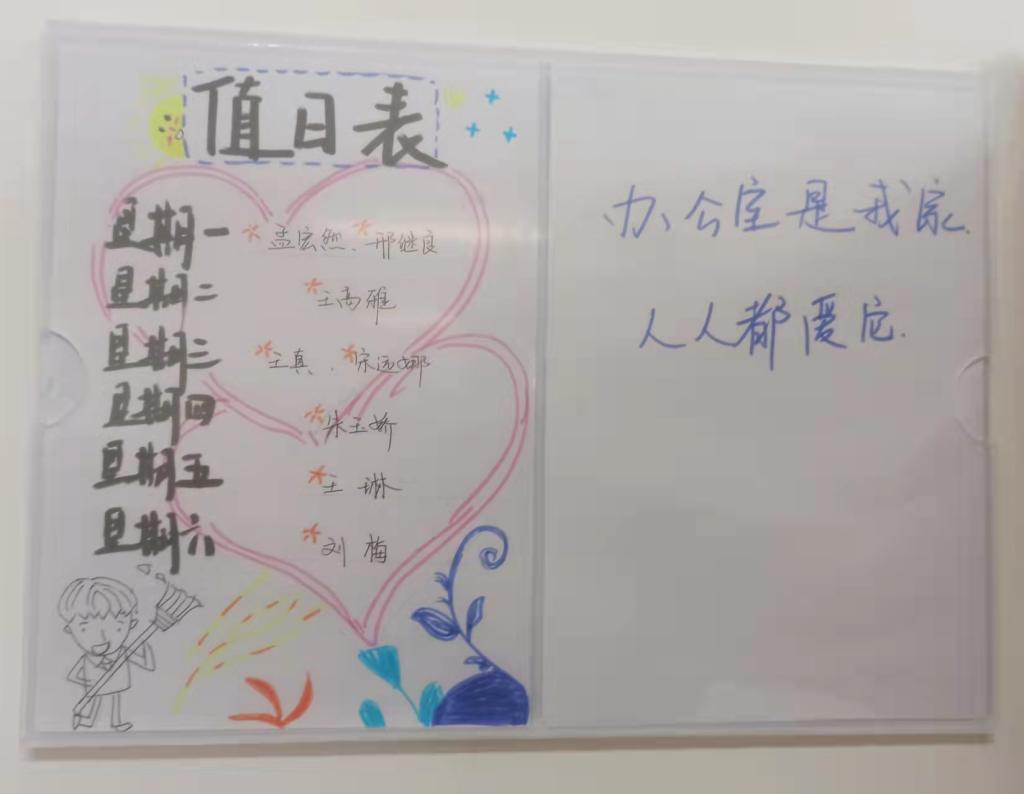 值日表
星期一 孟宏然、邢继良
星期二 王尚雅
星期三 王真、宋远娜
星期四 朱玉娇
星期五 王琳
星期六 刘梅
办公室是我家.
人人都爱它.